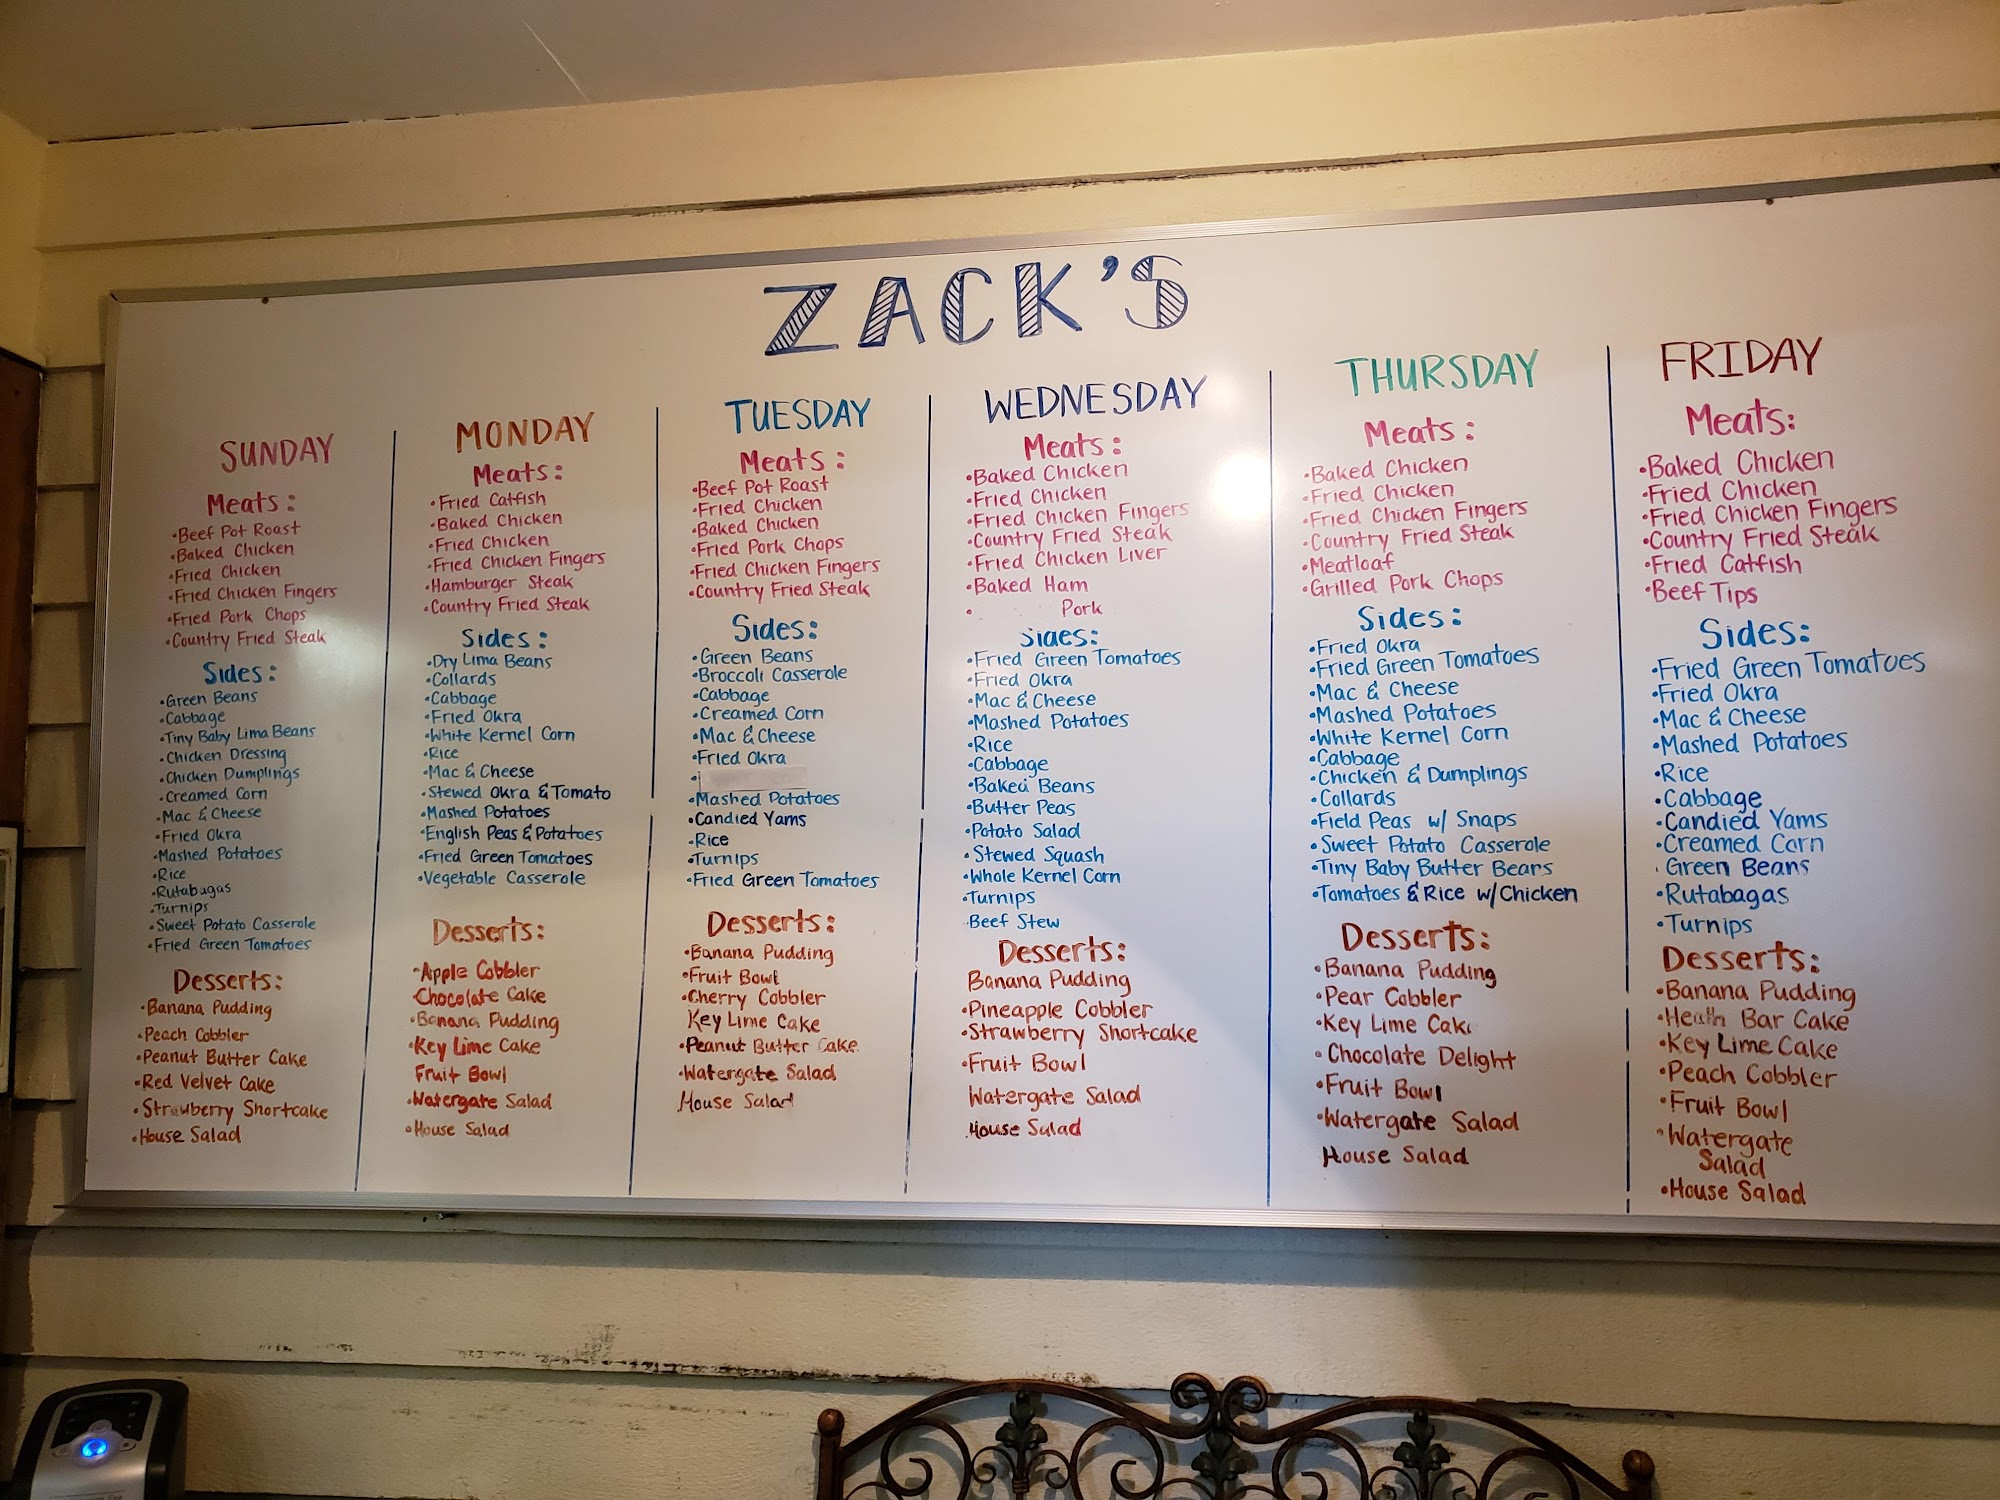 ZACK'S
SUNDAY
Meats:
•Beef Pot Roast
•Baked Chicken
•Fried Chicken
•Fried Chicken Fingers
•Fried Pork Chops
•Country Fried Steak
Sides:
•Green Beans
•Cabbage
•Tiny Baby Lima Beans
•Chicken Dressing
•Chicken Dumplings
•Creamed Corn
•Mac & Cheese
•Fried Okra
•Mashed Potatoes
•Rice
•Rutabagas
•Turnips
•Sweet Potato Casserole
•Fried Green Tomatoes
Desserts:
•Banana Pudding
•Peach Cobbler
•Peanut Butter Cake
•Red Velvet Cake
•Strawberry Shortcake
•House Salad
MONDAY
Meats:
•Fried Catfish
•Baked Chicken
•Fried Chicken
•Fried Chicken Fingers
•Hamburger Steak
•Country Fried Steak
Sides:
•Dry Lima Beans
•Collards
•Cabbage
•Fried Okra
•White Kernel Corn
•Rice
•Mac & Cheese
•Stewed Okra & Tomato
•Mashed Potatoes
•English Peas & Potatoes
•Fried Green Tomatoes
•Vegetable Casserole
Desserts:
•Apple Cobbler
Chocolate Cake
•Banana Pudding
•Key Lime Cake
Fruit Bowl
•Watergate Salad
•House Salad
TUESDAY
Meats:
•Beef Pot Roast
•Fried Chicken
•Baked Chicken
•Fried Pork Chops
•Fried Chicken Fingers
•Country Fried Steak
Sides:
•Green Beans
•Broccoli Casserole
•Cabbage
•Creamed Corn
•Mac & Cheese
•Fried Okra
•Mashed Potatoes
•Candied Yams
•Rice
•Turnips
•Fried Green Tomatoes
Desserts:
•Banana Pudding
•Fruit Bowl
•Cherry Cobbler
Key Lime Cake
•Peanut Butter Cake
•Watergate Salad
House Salad
WEDNESDAY
Meats:
•Baked Chicken
•Fried Chicken
•Fried Chicken Fingers
•Country Fried Steak
•Fried Chicken Liver
•Baked Ham
• Pork
Sides:
•Fried Green Tomatoes
•Fried Okra
•Mac & Cheese
•Mashed Potatoes
•Rice
•Cabbage
•Baked Beans
•Butter Peas
•Potato Salad
•Stewed Squash
•Whole Kernel Corn
•Turnips
Beef Stew
Desserts:
Banana Pudding
•Pineapple Cobbler
•Strawberry Shortcake
•Fruit Bowl
Watergate Salad
House Salad
THURSDAY
Meats:
•Baked Chicken
•Fried Chicken
•Fried Chicken Fingers
•Country Fried Steak
•Meatloaf
•Grilled Pork Chops
Sides:
•Fried Okra
•Fried Green Tomatoes
•Mac & Cheese
•Mashed Potatoes
•White Kernel Corn
•Cabbage
•Chicken & Dumplings
•Collards
•Field Peas w/ Snaps
•Sweet Potato Casserole
•Tiny Baby Butter Bears
•Tomatoes & Rice w/Chicken
Desserts:
•Banana Pudding
•Pear Cobbler
•Key Lime Cake
•Chocolate Delight
•Fruit Bowl
•Watergate Salad
House Salad
FRIDAY
Meats:
•Baked Chicken
•Fried Chicken
•Fried Chicken Fingers
•Country Fried Steak
•Fried Catfish
•Beef Tips
Sides:
•Fried Green Tomatoes
•Fried Okra
•Mac & Cheese
•Mashed Potatoes
•Rice
•Cabbage
•Candied Yams
•Creamed Corn
•Green Beans
•Rutabagas
•Turnips
Desserts:
•Banana Pudding
•Heath Bar Cake
•Key Lime Cake
•Peach Cobbler
•Fruit Bowl
•Watergate
Salad
•House Salad